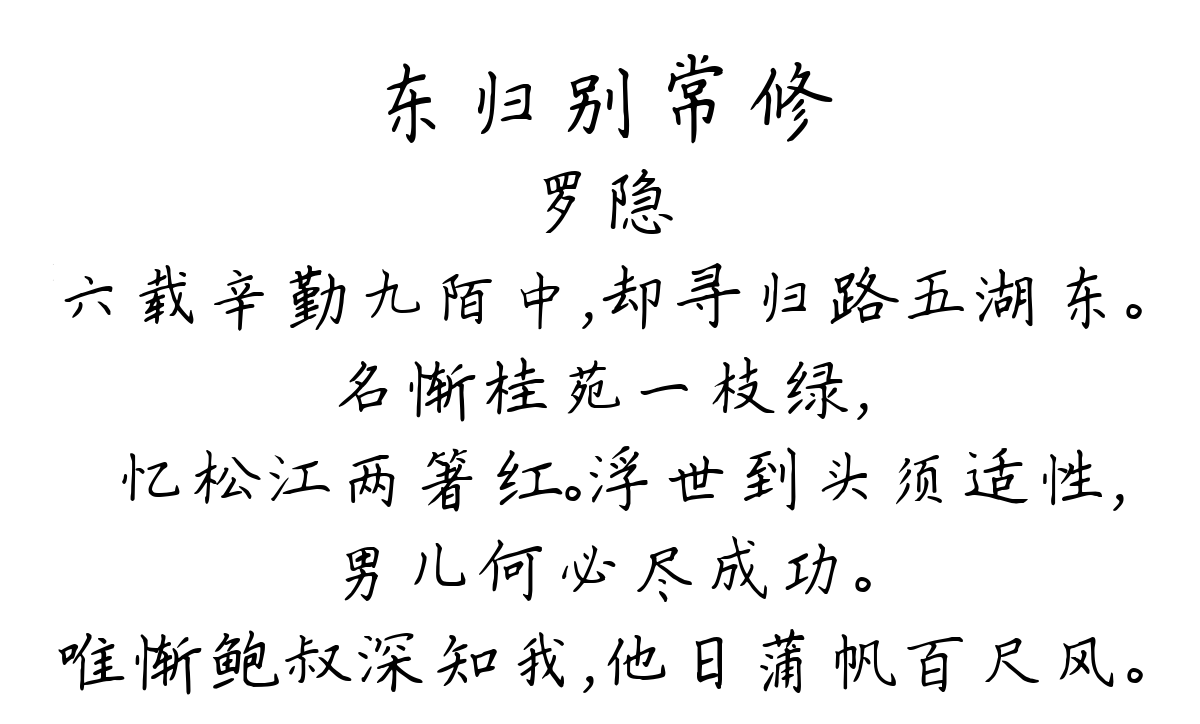 东归别常修
罗隐
六载辛勤九陌中,却寻归路五湖东。
名惭桂苑一枝绿,
忆松江两箸红。浮世到头须适性,
男儿何必尽成功。
唯惭鲍叔深知我,他日蒲帆百尺风。